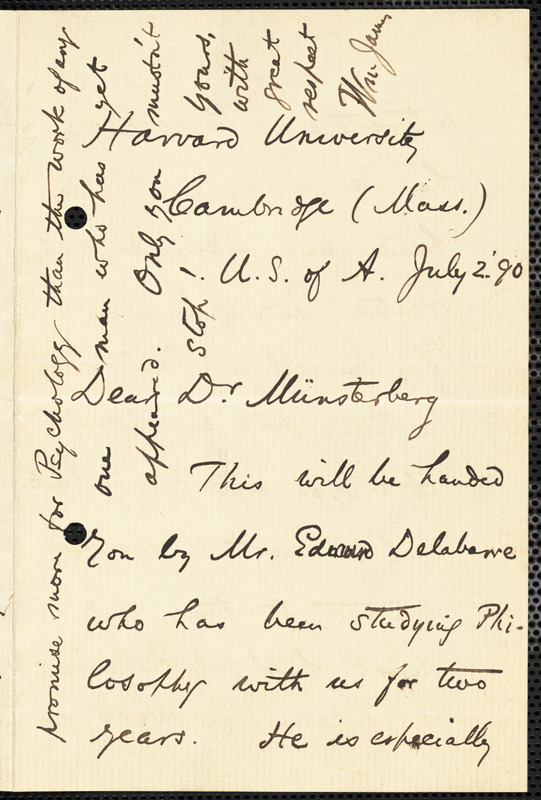 Harvard University
Cambridge (Mass.)
U.S. of A. July 2. 90
Dear Dr Münsterberg
This will be handed
you by Mr. Edmund Delabarre
who has been studying Phi-
losophy with us for two
years. He is especially
promise more for Psychology than the work of any
one man who has yet
appeared. Only you mustn't
stop!
Yours,
with
great
respect
Wm. James